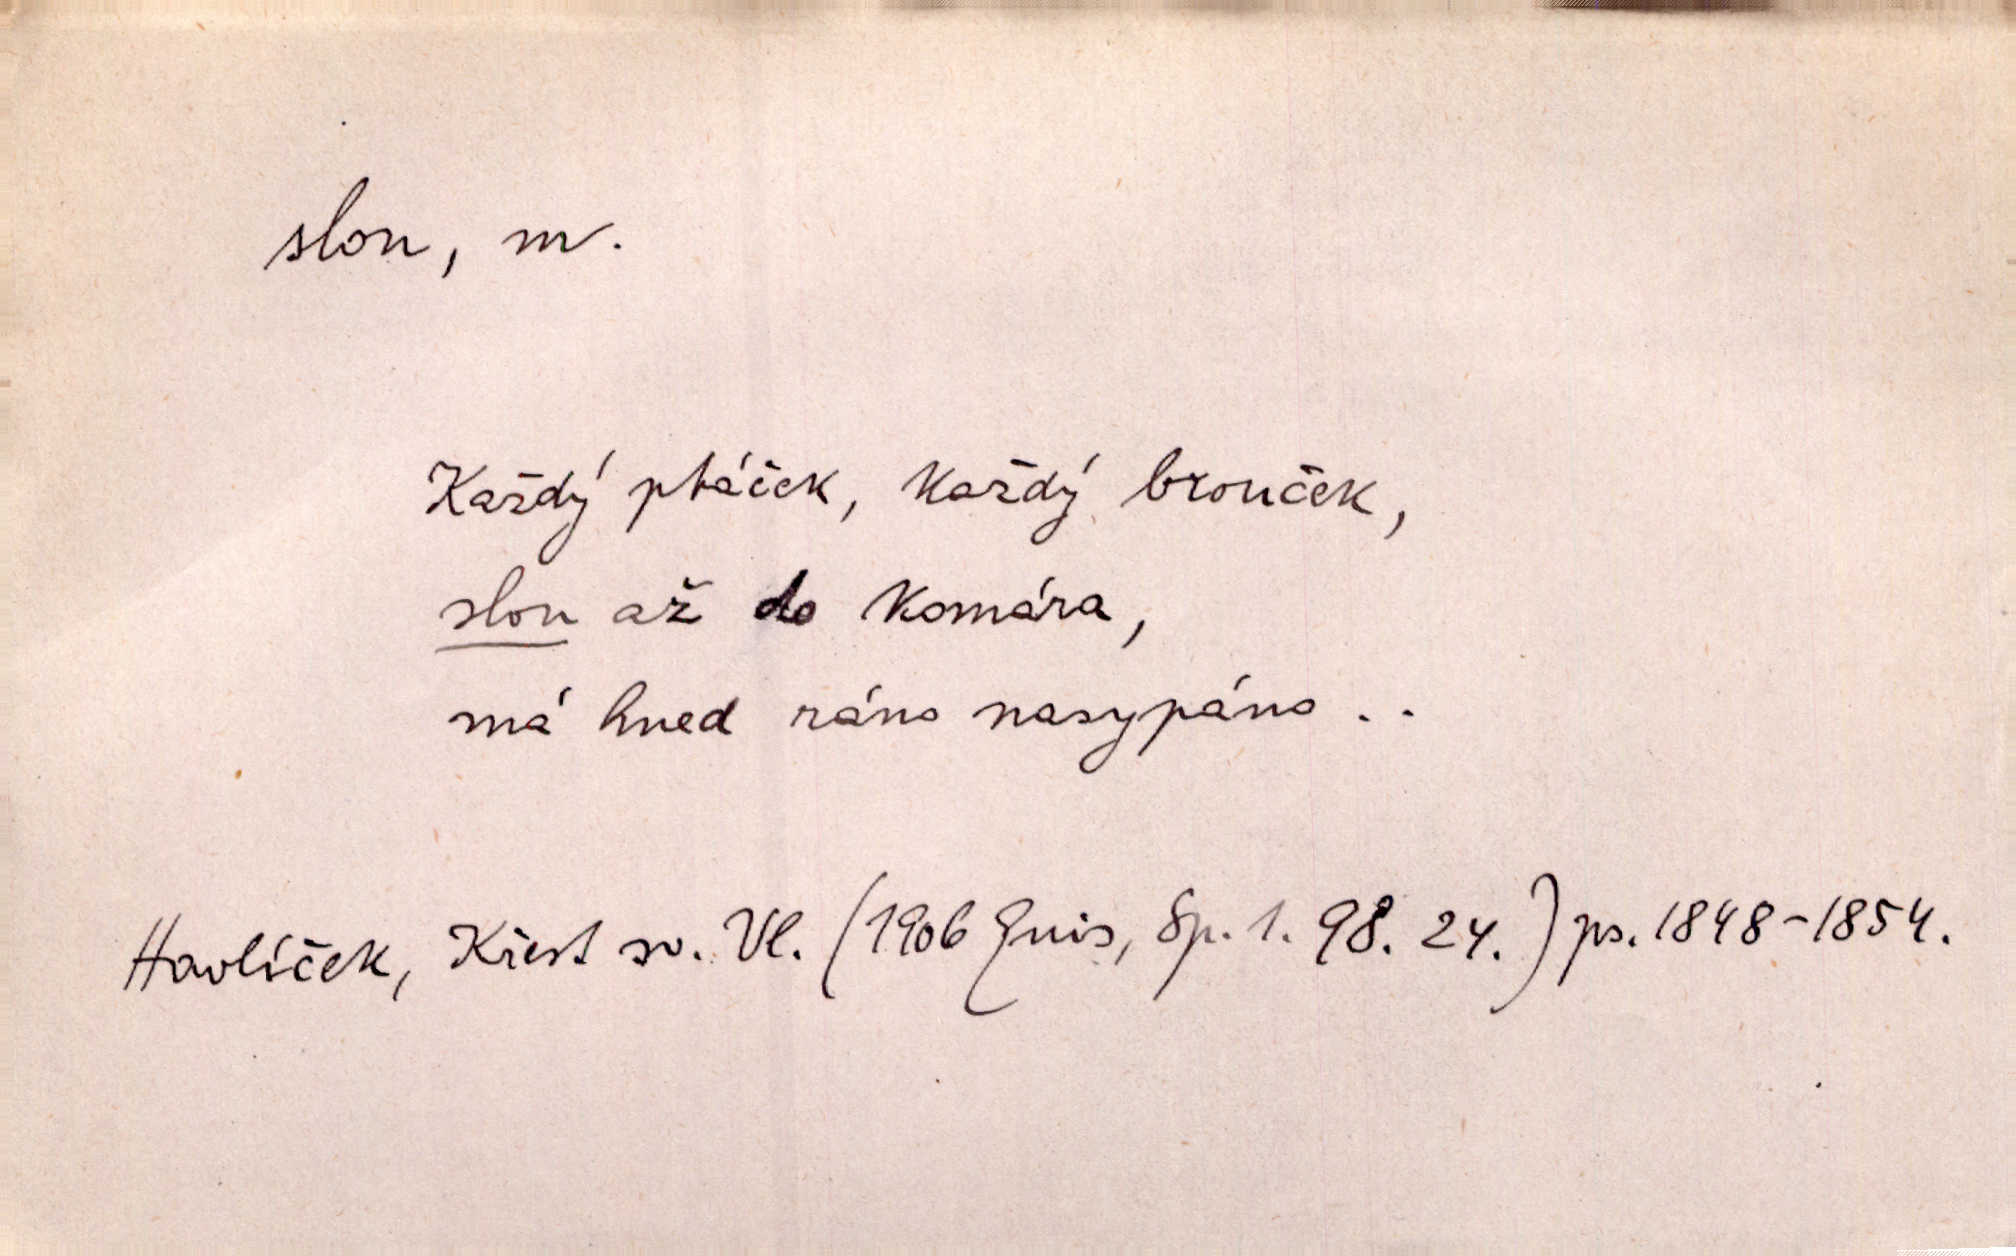 slon, m.
Každý ptáček, každý brouček,
slon až do komára,
má hned ráno nasypáno . .
Havlíček, Křest sv. Vl. (1906 Quis, Sp. 1. 98. 24.) ps. 1848-1854.